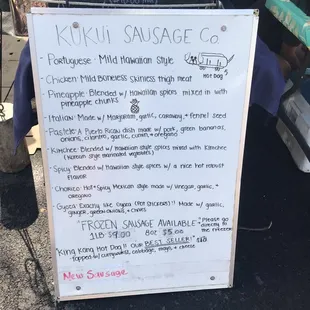 KUKUI SAUSAGE Co.
• Portuguese: Mild Hawaiian Style
HOT DOG
• Chicken: Mild Boneless Skinless thigh meat
• Pineapple: Blended w/ Hawaiian spices mixed in with
pineapple chunks
• Italian: Made w/ Marjoram, garlic, caraway, + fennel seed
• Pastele: A Puerto Rican dish made w/ pork, green bananas,
onions, cilantro, garlic, cumin, + oregano
• Kimchee: Blended w/ Hawaiian style spices mixed with Kimchee
(Korean style marinated vegetables)
• Spicy: Blended w/ Hawaiian style spices w/ a nice hot robust
flavor
• Chorizo: Hot + Spicy Mexican style made w/ Vinegar, garlic, +
oregano
Exactly like Gyoza (Pot Stickers!!) Made w/ garlic,
ginger, green onions, + chives
*FROZEN SAUSAGE AVAILABLE* *Please go
directly to
the freezer*
1LB $9.00 8oz $5.00
*King Kong Hot Dog!! Our BEST SELLER!*
topped w/ cabbage, mayo, + cheese
New Sausage